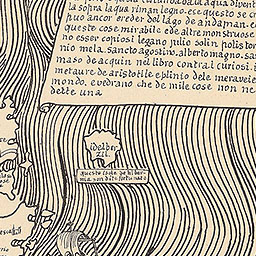 la sopra laqua riman legno. ecc questo se cr
puo ancor creder del lago de andaman. e
queste cose mirabile e de altre monstruose
no esser copiosi legano julio solin polistor
nio mela. sancto agostin. alberto magno. san
maso de acquin nel libro contra i curiosi. i
metaure de aristotile e plinio dele meraveie
mondo. e vedrano che de mile cose non ne
dette una
idelber
zil.
queste isole de hiber
nia son dite fortunate